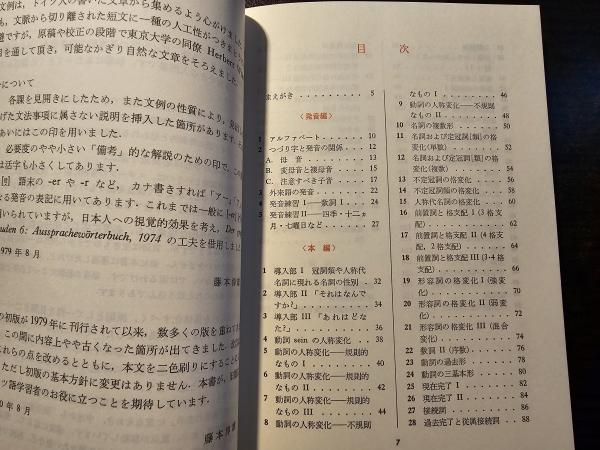 文例は、ドイツ人の書いた文章から集めるよう心がけました
も、文脈から切り離された短文に一種の人工性がつきまと
避ですが、原稿や校正の段階で東京大学の同僚 Herbert
目を通して頂き、可能なかぎり自然な文章をそろえました。
について
各課を見開きにしたため、また文例の性質により、
げた文法事項に属さない説明を挿入した箇所があります。
あいにはこの印を用いました。
必要度のやや小さい「備考」的な解説のための印で、この
は活字も小さくしてあります。
語末の -er や -r など、カナ書きすれば「アー」、「ア
る発音の表記に用いてあります。これまでは一般に
いられていますが、日本人への視覚的効果を考え、Der
uden 6: Aussprachewörterbuch, 1974 の工夫を借用しまし
979年8月
藤本
の初版が1979年に刊行されて以来、数多くの版を重ね
この間に内容上やや古くなった箇所が出てきました。
れらの点を改めるとともに、本文を二色刷りにすること
ただし初版の基本方針に変更はありません。本書が、
ツ語学習者のお役に立つことを期待しています。
0年8月
藤本
目 次
まえがき 5
〈発音編〉
1 アルファベート 10
2 つづり字と発音の関係 12
A. 母音 13
B. 変母音と複母音 15
C. 注意すべき子音 17
3 外来語の発音 22
4 発音練習 I ——数詞 I 24
5 発音練習 II —— 四季・十二ヵ
月・七曜日など 27
〈本編〉
1 導入部 I 冠詞類や人称代
名詞に現れる名詞の性別 32
2 導入部 II 「それはなんで
すか?」 34
3 導入部 III 「あれはどな
た?」 36
4 動詞 sein の人称変化 38
5 動詞の人称変化——規則的
なもの I 40
6 動詞の人称変化——規則的
なもの II 42
7 動詞の人称変化——規則的
なもの III 44
8 動詞の人称変化——不規則
なもの I 46
9 動詞の人称変化——不規則
なもの II 48
10 名詞の複数形 50
11 名詞および定冠詞[類]の格
変化(単数) 52
12 名詞および定冠詞[類]の格
変化(複数) 54
13 不定冠詞の格変化 56
14 不定冠詞類の格変化 58
15 人称代名詞の格変化 60
16 前置詞と格支配 I (3格支
配) 62
17 前置詞と格支配 II (4格支
配、2格支配) 64
18 前置詞と格支配 III (3・4格
支配) 66
19 形容詞の格変化 I (強変
化) 70
20 形容詞の格変化 II (弱変
化) 72
21 形容詞の格変化 III (混合
変化) 74
22 数詞 II (序数) 76
23 動詞の過去形 78
24 動詞の三基本形 80
25 現在完了 I 82
26 現在完了 II 84
27 接続詞 86
28 過去完了と従属接続詞 88
7